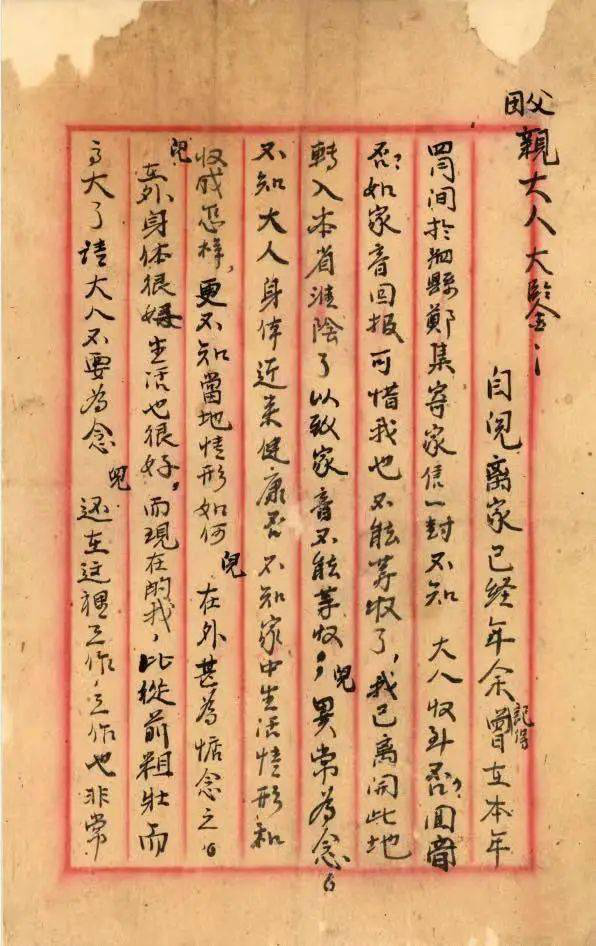 父母親大人大鑒:
自兒离家已経年余記得曾在本年
四月间於泗縣鄭集寄家信一封不知 大人收到否?回音
否?如家音回报可惜我也不能等收了,我已离開此地
轉入本省淮陰了以致家音不能等收;兒異常為念。
不知大人身体近来健康否 不知家中生活情形和
收成怎样,更不知當地情形如何 兒在外甚為惦念之。
兒在外身体很好生活也很好,而現在的我,比從前粗壮而
高大了请大人不要為念 兒还在这裡工作,工作也非常